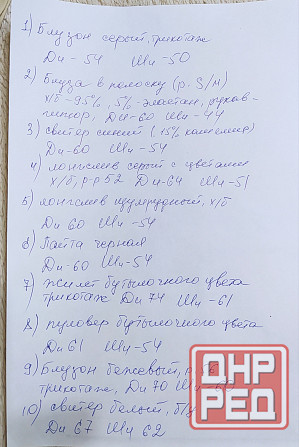 1) Блузон серый, трикотаж
Ди - 54 Ши - 50
2) Блуза в полоску (р. S/M)
х/б - 95%, 5% - эластан, рукав -
гипюр, Ди - 60 Ши - 44
3) свитер синий (15% кашемир)
Ди - 60 Ши - 54
4) лонгслив серый с цветами
х/б, р-р 52 Ди - 64 Ши - 51
5) лонгслив изумрудный, х/б
Ди 60 Ши - 54
6) Лапта черная
Ди - 60 Ши - 54
7) Жилет бутылочного цвета
трикотаж Ди 74 Ши - 61
8) пуловер бутылочного цвета
Ди 61 Ши - 54
9) Блузон бежевый, р. 56
трикотаж, Ди 70 Ши - 60
10) свитер белый, б/у
Ди 67 Ши 62
ДНР
РЕД